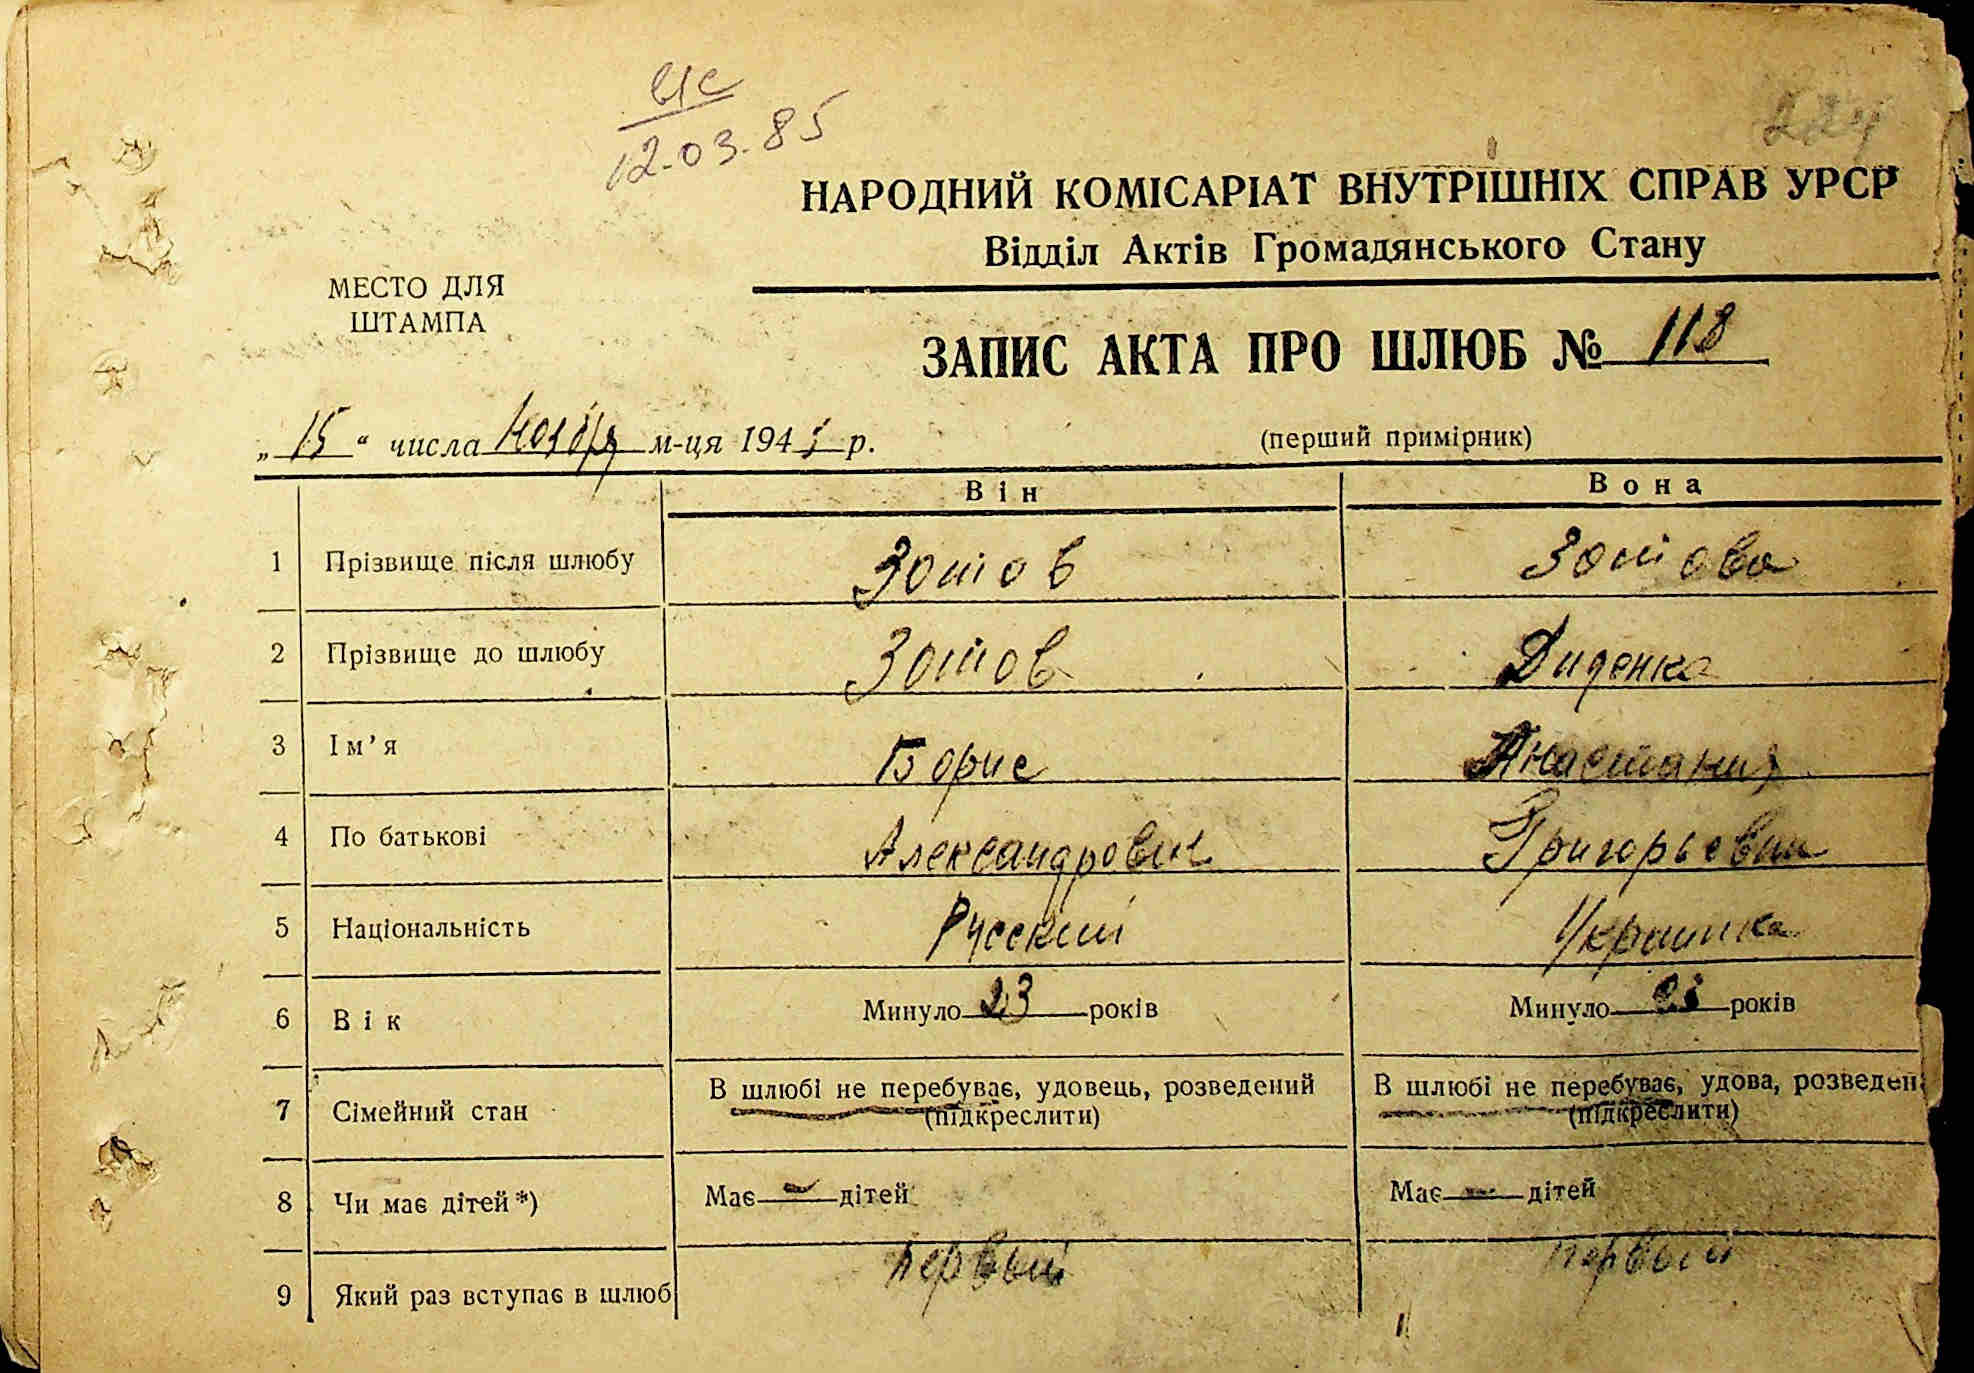 12.03.85
224
НАРОДНИЙ КОМІСАРІАТ ВНУТРІШНІХ СПРАВ УРСР
Відділ Актів Громадянського Стану
МЕСТО ДЛЯ
ШТАМПА
ЗАПИС АКТА ПРО ШЛЮБ № 118
„15“ числа Ноября м-ця 194 р.
(перший примірник)
Він Вона
1 Прізвище після шлюбу Зотов Зотова
2 Прізвище до шлюбу Зотов Диденко
3 Ім’я Борис Анастасия
4 По батькові Александрович Григорьевна
5 Національність Русский Украинка
6 Вік Минуло 23 років Минуло років
7 Сімейний стан В шлюбі не перебуває, удовець, розведений В шлюбі не перебуває, удова, розведен
(підкреслити) (підкреслити)
8 Чи має дітей*) Має — дітей Має — дітей
9 Який раз вступає в шлюб первый первый